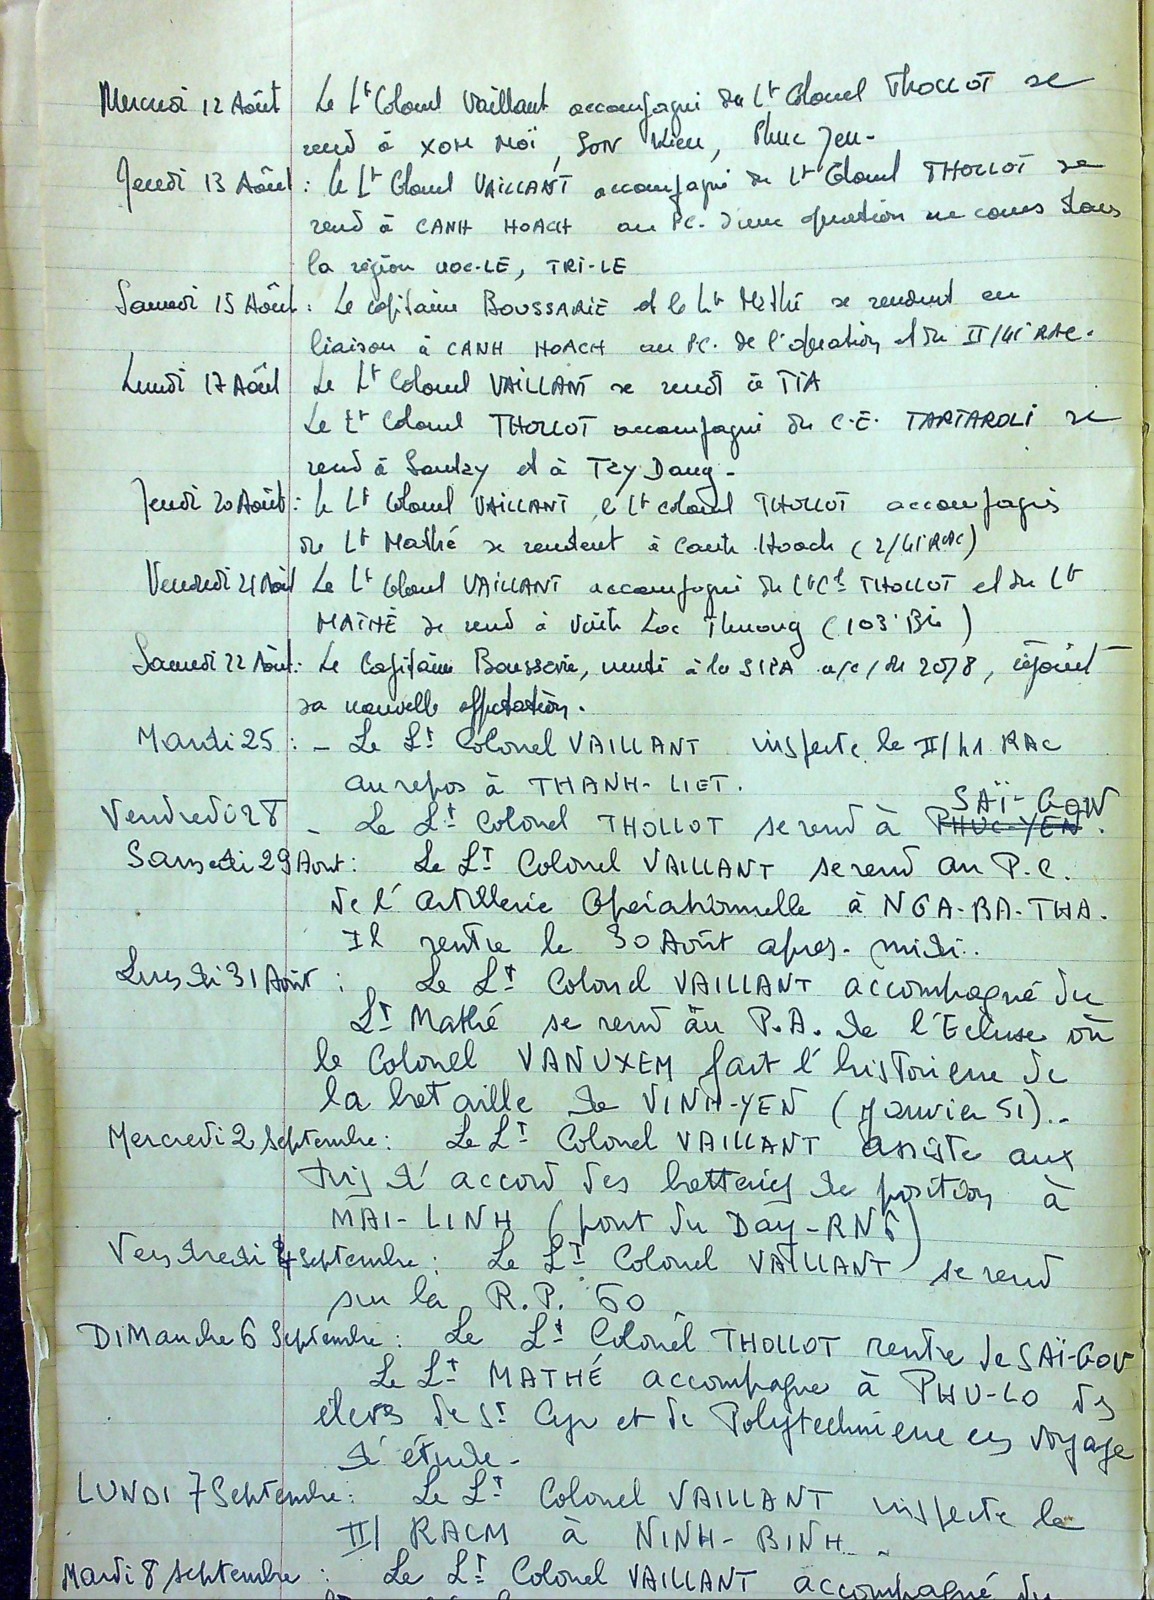 Mercredi 12 Août Le Lt Colonel Vaillant accompagné du Lt Colonel THOLLOT se
rend à XOM MOÏ, SON Kieu, Phuc Yen.
Jeudi 13 Août : le Lt Colonel VAILLANT accompagné du Lt Colonel THOLLOT se
rend à CANH HOACH au PC. d'une opération en cours dans
la région UOC-LE, TRI-LE
Samedi 15 Août : Le capitaine BOUSSARIE et le Lt Mathé se rendent en
liaison à CANH HOACH au PC. de l'opération et du II/41e RAC.
Lundi 17 Août Le Lt Colonel VAILLANT se rend à TIA
Le Lt Colonel THOLLOT accompagné du C.E. TARTAROLI se
rend à Sontay et à Tzy Dang -
Jeudi 20 Août : le Lt Colonel VAILLANT, le Lt colonel THOLLOT accompagnés
du Lt Mathé se rendent à Canh Hoach (2/41e RAC)
Vendredi 21 Août Le Lt Colonel VAILLANT accompagné du Lt Cl THOLLOT et du Lt
MATHÉ se rend à Vinh Loc Thuong (103e Bie)
Samedi 22 Août : Le Capitaine Bousserie, muté à la a/c/du 20/8, rejoint
sa nouvelle affectation.
Mardi 25 : - Le Lt Colonel VAILLANT inspecte le II/41 RAC
au repos à THANH-LIET.
SAÏ-GON
Vendredi 28 - Le Lt Colonel THOLLOT se rend à PHUC-YEN.
Samedi 29 Aout : Le Lt Colonel VAILLANT se rend au P.C.
de l'Artillerie Opérationnelle à NGA-BA-THA.
Il rentre le 30 Août après-midi..
Lundi 31 Août : Le Lt Colonel VAILLANT accompagné du
Lt Mathé se rend au P.A. de l'Ecluse où
le Colonel VANUXEM fait l'historique de
la bataille de VINH-YEN (Janvier 51)..
Mercredi 2 Septembre : Le Lt Colonel VAILLANT assiste aux
tirs d'accord des batteries de position à
MAI-LINH (pont du Day-RN6)
Vendredi 4 Septembre : Le Lt Colonel VAILLANT se rend
sur la R.P. 60
DIManche 6 Septembre : Le Lt Colonel THOLLOT rentre de SAÏ-GON
Le Lt MATHÉ accompagne à PHU-LO des
élèves de St Cyr et de Polytechnique en voyage
d'étude -
LUNDI 7 Septembre : Le Lt Colonel VAILLANT inspecte le
II/ RACM à NINH-BINH..
Mardi 8 septembre : Le Lt Colonel VAILLANT accompagné du